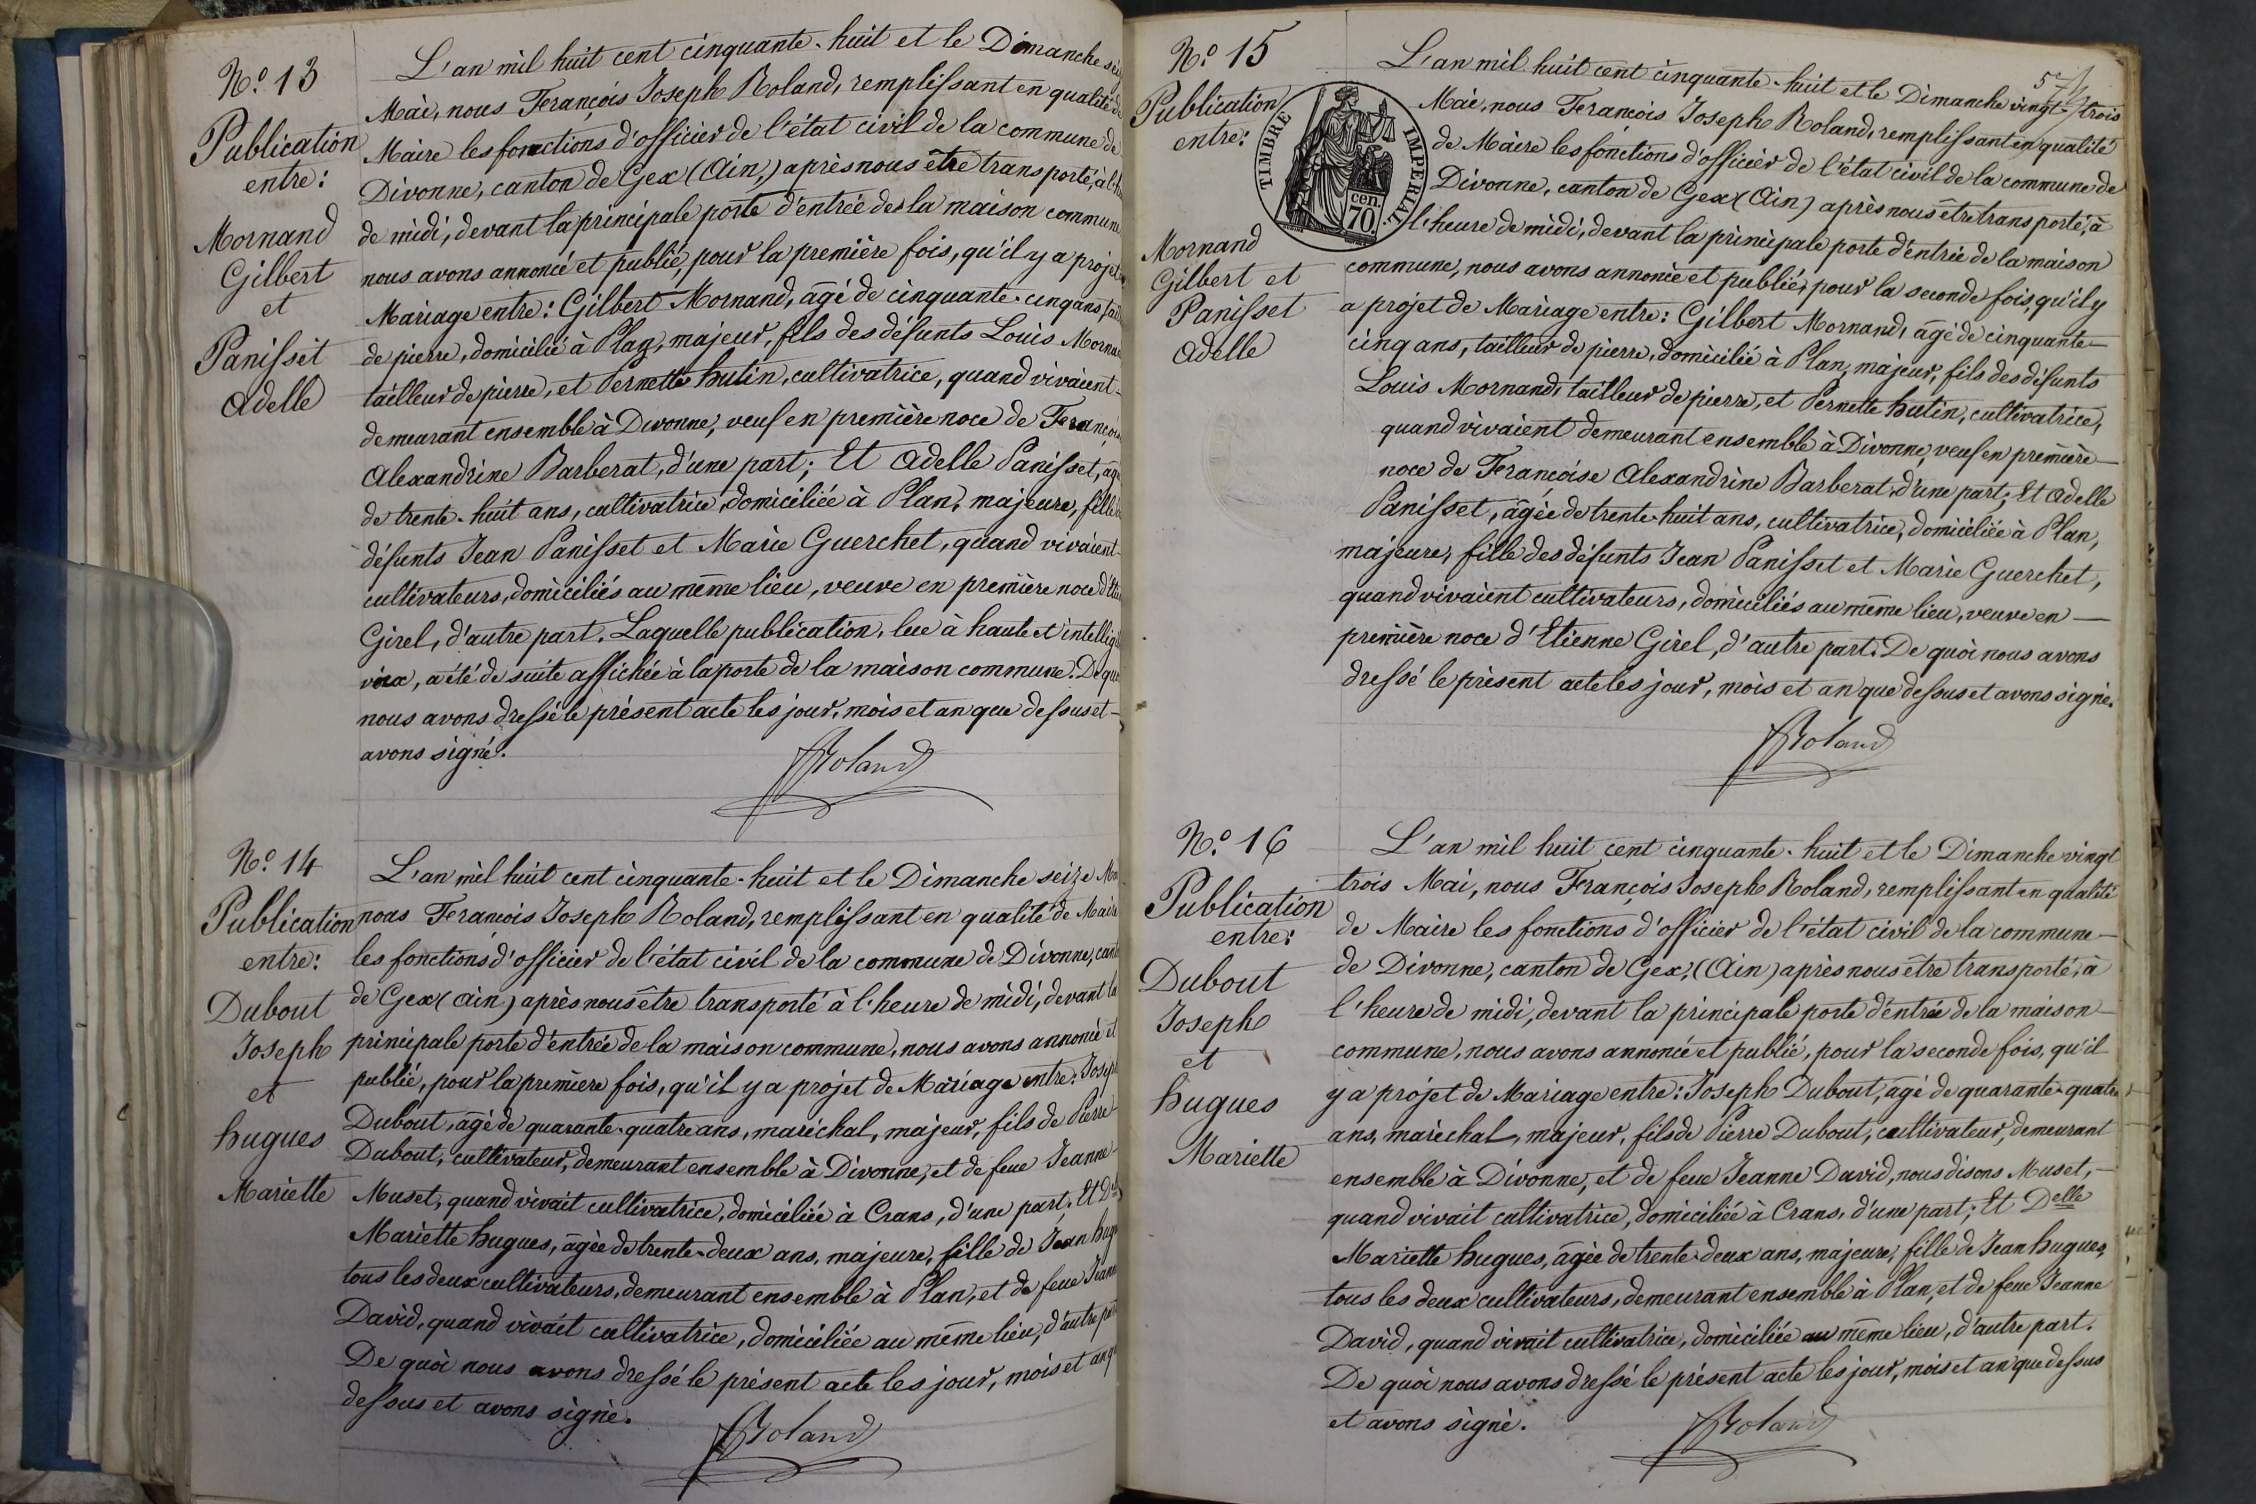 N.º 13
Publication
entre:
Mornand
Gilbert
et
Panisset
Adelle
L'an mil huit cent cinquante-huit et le Dimanche
Mai, nous François Joseph Roland, remplissant en qualité de
Maire les fonctions d'officier de l'état civil de la commune de
Divonne, canton de Gex (Ain,) après nous être transporté, à
de midi, devant la principale porte d'entrée de la maison commune
nous avons annoncé et publié, pour la première fois, qu'il y a projet
Mariage entre: Gilbert Mornand, âgé de cinquante-cinq ans,
de pierre, domicilié à Plan, majeur, fils des défunts Louis
tailleur de pierre, et Pernette hutin, cultivatrice, quand vivaient
demeurant ensemble à Divonne, veuf en première noce de
Alexandrine Barberat, d'une part; Et Adelle Panisset,
de trente-huit ans, cultivatrice, domiciliée à Plan, majeure, fille
défunts Jean Panisset et Marie Guerchet, quand vivaient
cultivateurs, domiciliés au même lieu, veuve en première noce
Girel, d'autre part. Laquelle publication, lue à haute et
voix, a été de suite affichée à la porte de la maison commune. De
nous avons dressé le présent acte les jour, mois et an que dessus et
avons signé.
Roland
N.º 14
Publication
entre:
Dubout
Joseph
et
hugues
Mariette
L'an mil huit cent cinquante-huit et le Dimanche seize
nous François Joseph Roland, remplissant en qualité de Maire
les fonctions d'officier de l'état civil de la commune de Divonne,
de Gex (Ain) après nous être transporté à l'heure de midi, devant la
principale porte d'entrée de la maison commune, nous avons annoncé et
publié, pour la première fois, qu'il y a projet de Mariage entre: Joseph
Dubout, âgé de quarante-quatre ans, maréchal, majeur, fils de Pierre
Dubout, cultivateur, demeurant ensemble à Divonne, et de feue Jeanne
Muset, quand vivait cultivatrice, domiciliée à Crans, d'une part. Et
Mariette hugues, âgée de trente-deux ans, majeure, fille de Jean
tous les deux cultivateurs, demeurant ensemble à Plan, et de feue
David, quand vivait cultivatrice, domiciliée au même lieu, d'autre
De quoi nous avons dressé le présent acte les jour, mois et an
dessus et avons signé.
Roland
N.º 15
Publication
entre:
TIMBRE IMPERIAL
cen.
70
Mornand
Gilbert et
Panisset
Adelle
L'an mil huit cent cinquante-huit et le Dimanche vingt-trois
Mai, nous François Joseph Roland, remplissant en qualité
de Maire les fonctions d'officier de l'état civil de la commune de
Divonne, canton de Gex (Ain) après nous être transporté, à
l'heure de midi, devant la principale porte d'entrée de la maison
commune, nous avons annoncé et publié, pour la seconde fois, qu'il y
a projet de Mariage entre: Gilbert Mornand, âgé de cinquante-
cinq ans, tailleur de pierre, domicilié à Plan, majeur, fils des défunts
Louis Mornand, tailleur de pierre, et Pernette hutin, cultivatrice,
quand vivaient demeurant ensemble à Divonne, veuf en première
noce de Françoise Alexandrine Barberat, d'une part; Et Adelle
Panisset, âgée de trente-huit ans, cultivatrice, domiciliée à Plan,
majeure, fille des défunts Jean Panisset et Marie Guerchet,
quand vivaient cultivateurs, domiciliés au même lieu, veuve en
première noce d'Etienne Girel, d'autre part. De quoi nous avons
dressé le présent acte les jour, mois et an que dessus et avons signé.
Roland
N.º 16
Publication
entre:
Dubout
Joseph
et
hugues
Mariette
L'an mil huit cent cinquante-huit et le Dimanche vingt
trois Mai, nous François Joseph Roland, remplissant en qualité
de Maire les fonctions d'officier de l'état civil de la commune
de Divonne, canton de Gex, (Ain) après nous être transporté, à
l'heure de midi, devant la principale porte d'entrée de la maison
commune, nous avons annoncé et publié, pour la seconde fois, qu'il
y a projet de Mariage entre: Joseph Dubout, âgé de quarante-quatre
ans, maréchal, majeur, fils de Pierre Dubout, cultivateur, demeurant
ensemble à Divonne, et de feue Jeanne David, nous disons Muset,
quand vivait cultivatrice, domiciliée à Crans, d'une part; Et Delle
Mariette hugues, âgée de trente-deux ans, majeure, fille de Jean hugues,
tous les deux cultivateurs, demeurant ensemble à Plan, et de feue Jeanne
David, quand vivait cultivatrice, domiciliée au même lieu, d'autre part.
De quoi nous avons dressé le présent acte les jour, mois et an que dessus
et avons signé.
Roland